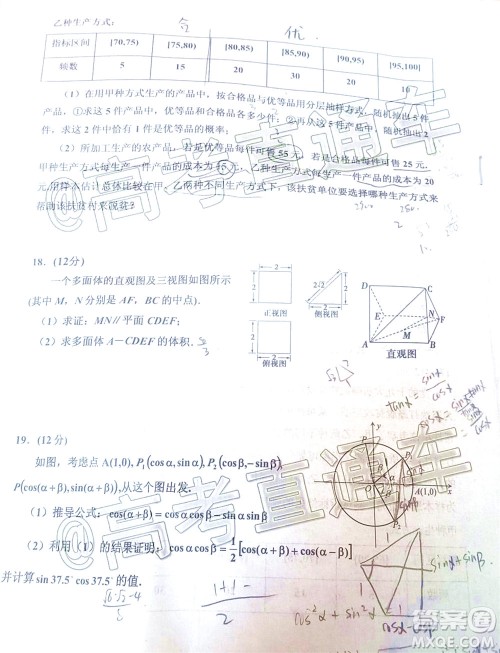 乙种生产方式：
合 优.
指标区间 [70,75) [75,80) [80,85) [85,90) [90,95) [95,100]
频数 5 15 20 30 20 10
（1）在用甲种方式生产的产品中，按合格品与优等品用分层抽样方式，随机抽出5件
产品，①求这5件产品中，优等品和合格品各多少件；②再从这5件产品中，随机抽出2
件，求这2件中恰有1件是优等品的概率；
（2）所加工生产的农产品，若是优等品每件可售55元，若是合格品每件可售25元，
甲种生产方式每生产一件产品的成本为15元，乙种生产方式每生产一件产品的成本为20
元，用样本估计总体比较在甲、乙两种不同生产方式下，该扶贫单位要选择哪种生产方式来
帮助该扶贫村来脱贫？
18.（12分）
一个多面体的直观图及三视图如图所示
(其中 M，N 分别是 AF，BC 的中点).
（1）求证：MN∥平面 CDEF；
（2）求多面体 A－CDEF 的体积.
正视图 侧视图
俯视图
D C E N F M A B
直观图
tanα = sinα/cosα
19.（12分）
如图，考虑点 A(1,0), P₁(cosα,sinα), P₂(cosβ,−sinβ)
P(cos(α+β),sin(α+β)),从这个图出发.
（1）推导公式：cos(α+β)=cosαcosβ−sinαsinβ
（2）利用（1）的结果证明：cosαcosβ=1/2[cos(α+β)+cos(α−β)]
并计算 sin37.5°cos37.5° 的值.
y P₁ P O A(1,0) x P₂
sinα+sinβ
1+1-
2
cos²α+sin²α
@高考直通车
@高考直通车
答案圈
MXQE.COM